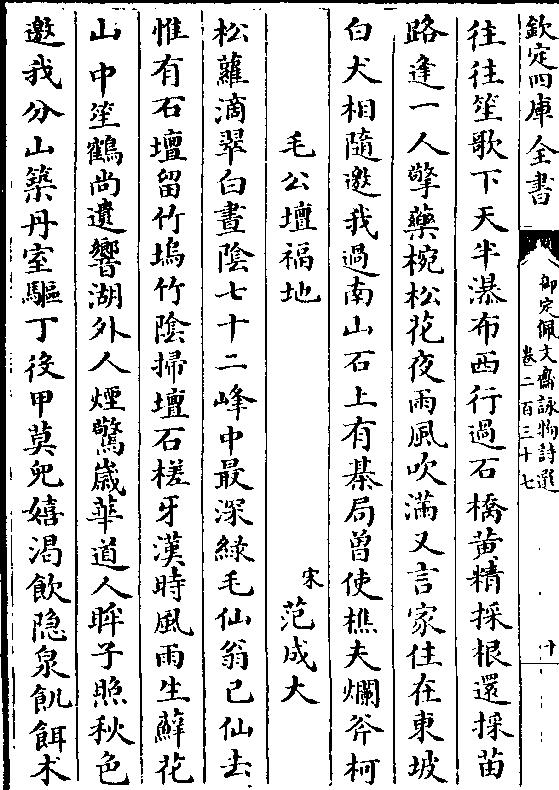 欽定四庫全書
御定佩文齋詠物詩選
卷二百三十七
十
往往笙歌下天半瀑布西行過石橋黄精採根還採苗
路逢一人擎藥椀松花夜雨風吹滿又言家住在東坡
白犬相隨邀我過南山石上有棊局曾使樵夫爛斧柯
毛公壇福地
宋范成大
松蘿滴翠白晝陰七十二峰中最深緑毛仙翁已仙去
惟有石壇留竹塢竹陰掃壇石槎牙漢時風雨生蘚花
山中笙鶴尚遺響湖外人煙驚歳華道人眸子照秋色
邀我分山築丹室驅丁役甲莫兒嬉渴飲隐泉飢餌术